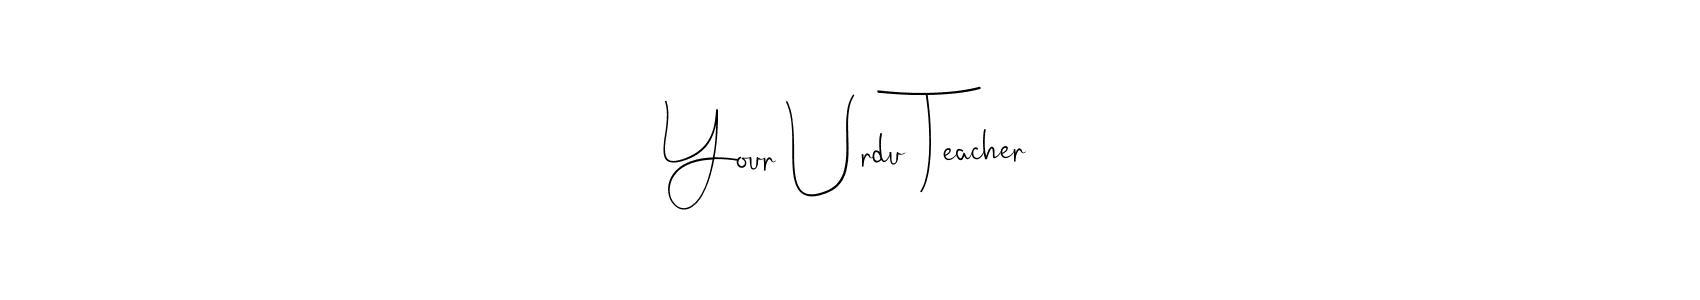 Your Urdu Teacher